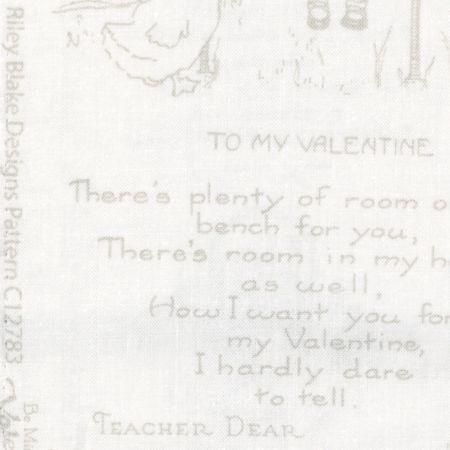 Riley Blake Designs Pattern C12783
TO MY VALENTINE
There's plenty of room
bench for you,
There's room in my
as well,
How I want you for
my Valentine,
I hardly dare
to tell.
TEACHER DEAR